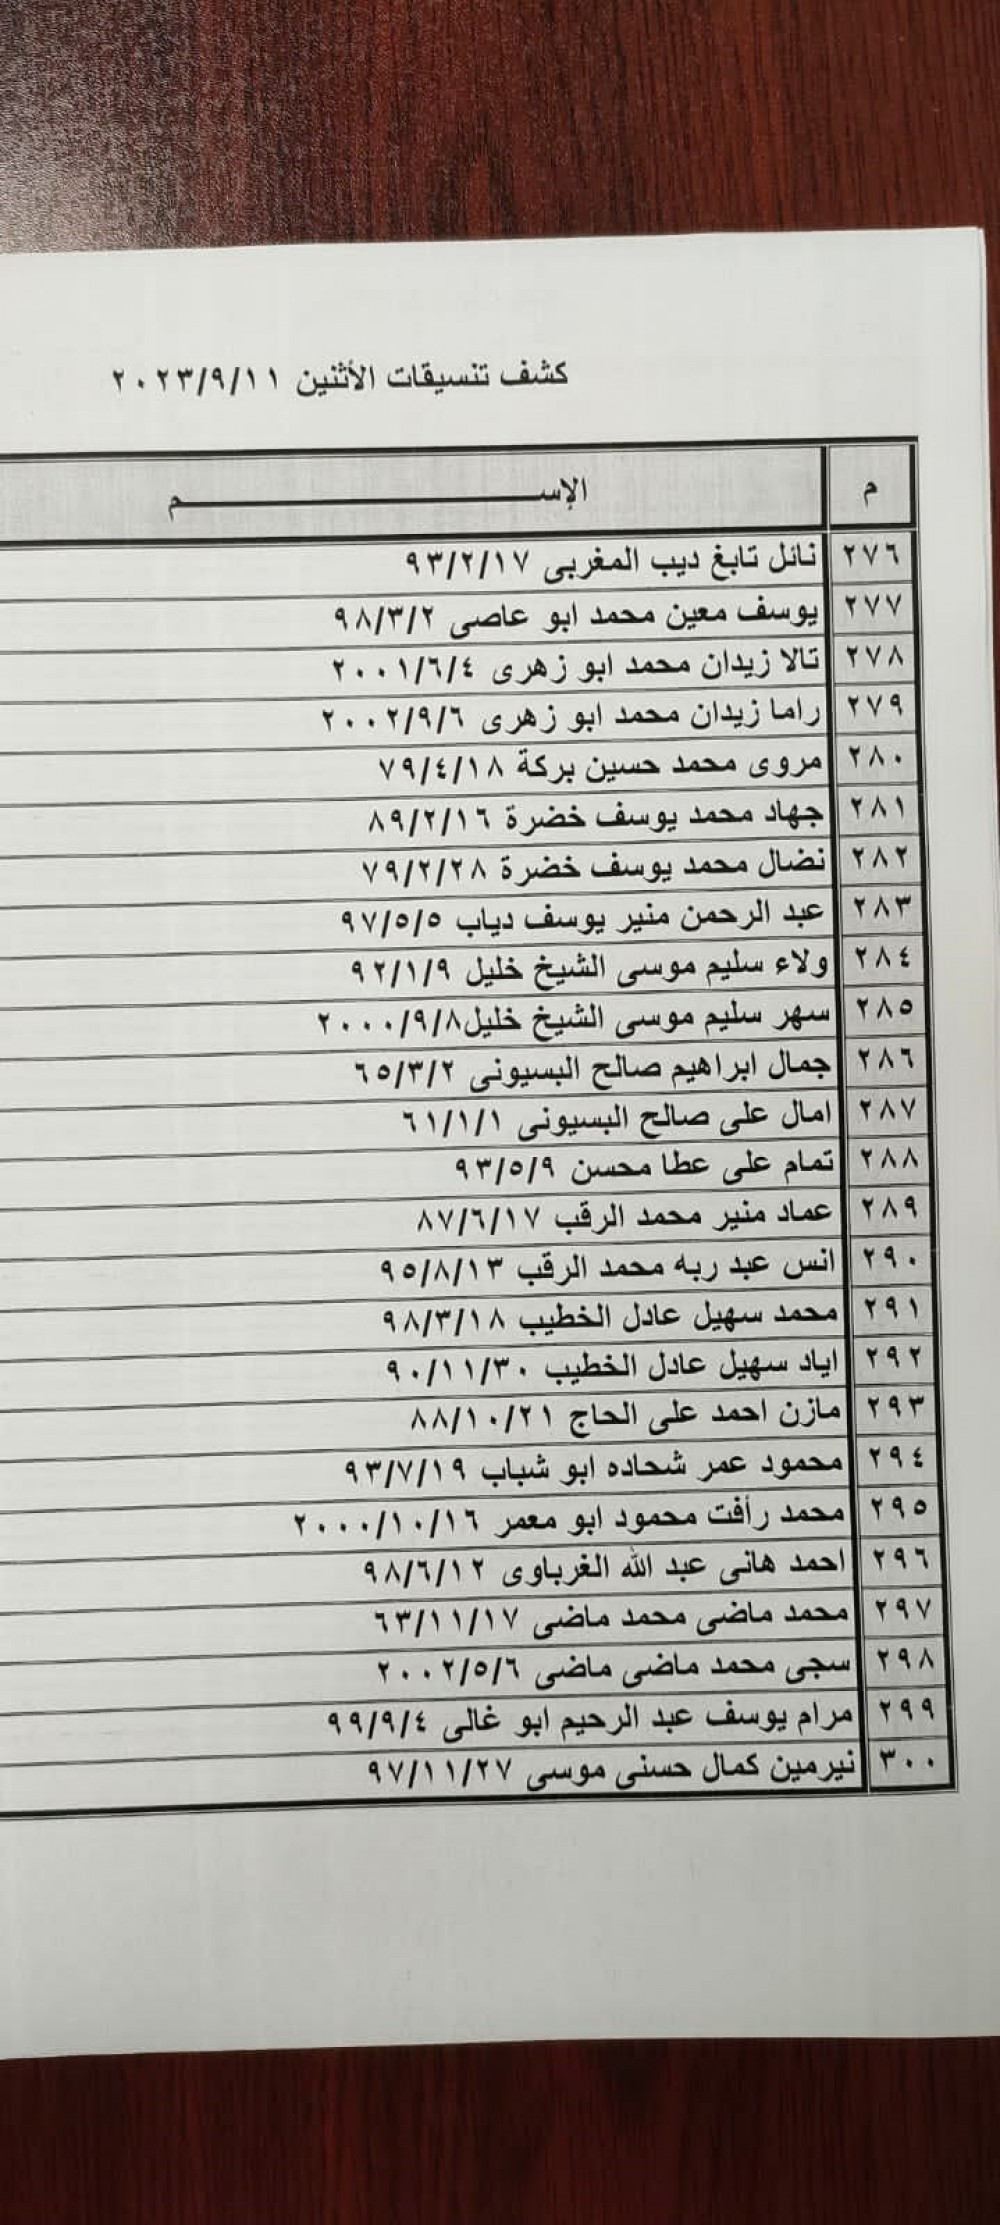 كشف تنسيقات الأثنين ٢٠٢٣/٩/١١
م الإســـــــــم
٢٧٦ نائل تابغ ديب المغربى ٩٣/٢/١٧
٢٧٧ يوسف معين محمد ابو عاصى ٩٨/٣/٢
٢٧٨ تالا زيدان محمد ابو زهرى ٢٠٠١/٦/٤
٢٧٩ راما زيدان محمد ابو زهرى ٢٠٠٢/٩/٦
٢٨٠ مروى محمد حسين بركة ٧٩/٤/١٨
٢٨١ جهاد محمد يوسف خضرة ٨٩/٢/١٦
٢٨٢ نضال محمد يوسف خضرة ٧٩/٢/٢٨
٢٨٣ عبد الرحمن منير يوسف دياب ٩٧/٥/٥
٢٨٤ ولاء سليم موسى الشيخ خليل ٩٢/١/٩
٢٨٥ سهر سليم موسى الشيخ خليل٢٠٠٠/٩/٨
٢٨٦ جمال ابراهيم صالح البسيونى ٦٥/٣/٢
٢٨٧ امال على صالح البسيونى ٦١/١/١
٢٨٨ تمام على عطا محسن ٩٣/٥/٩
٢٨٩ عماد منير محمد الرقب ٨٧/٦/١٧
٢٩٠ انس عبد ربه محمد الرقب ٩٥/٨/١٣
٢٩١ محمد سهيل عادل الخطيب ٩٨/٣/١٨
٢٩٢ اياد سهيل عادل الخطيب ٩٠/١١/٣٠
٢٩٣ مازن احمد على الحاج ٨٨/١٠/٢١
٢٩٤ محمود عمر شحاده ابو شباب ٩٣/٧/١٩
٢٩٥ محمد رأفت محمود ابو معمر ٢٠٠٠/١٠/١٦
٢٩٦ احمد هانى عبد الله الغرباوى ٩٨/٦/١٢
٢٩٧ محمد ماضى محمد ماضى ٦٣/١١/١٧
٢٩٨ سجى محمد ماضى ماضى ٢٠٠٢/٥/٦
٢٩٩ مرام يوسف عبد الرحيم ابو غالى ٩٩/٩/٤
٣٠٠ نيرمين كمال حسنى موسى ٩٧/١١/٢٧